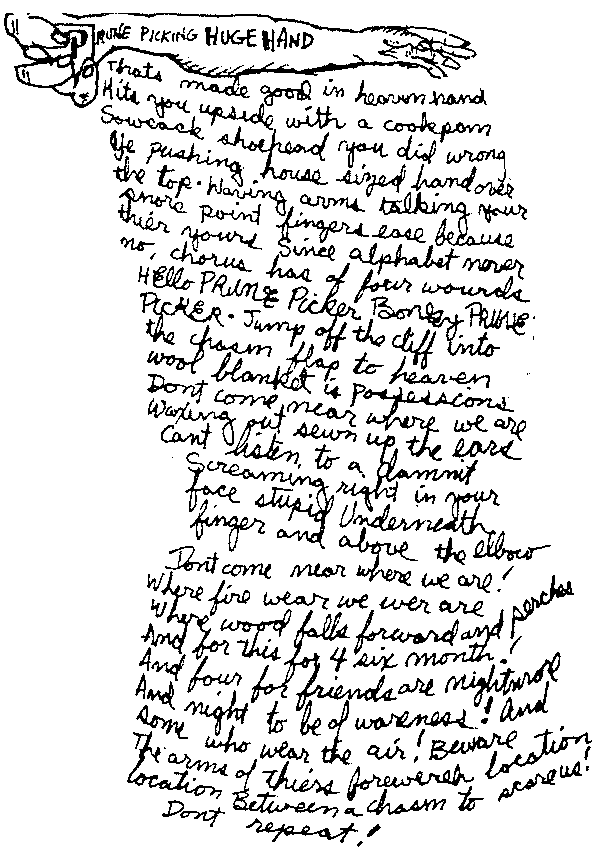 PRUNE PICKING HUGE HAND
Thats made good in heaven hand
Hits you upside with a cookpom
Sowcack shoehead you did wrong
Ye pushing house sized hand over
the top. Waving arms talking your
snore point fingers ease because
thier yours Since alphabet never
no, chorus has of four wounds
HEllo PRUNE Picker Boney PRUNE
PICKER. Jump off the cliff into
the chasm flap to heaven
wool blanket is Possesscons
Dont come near where we are
Waxing out sewn up the ears
Cant listen to a dammit
Screaming right in your
face stupid Underneath
finger and above the elbow
Dont come near where we are!
Where fire wear we wer are
Where wood falls forward and perches
And for this for 4 six month!
And four for friends are
And night to be of wareness! And
some who wear the air! Beware
The arms of thiers forewereh location
location Between a chasm to scare us!
Dont repeat!